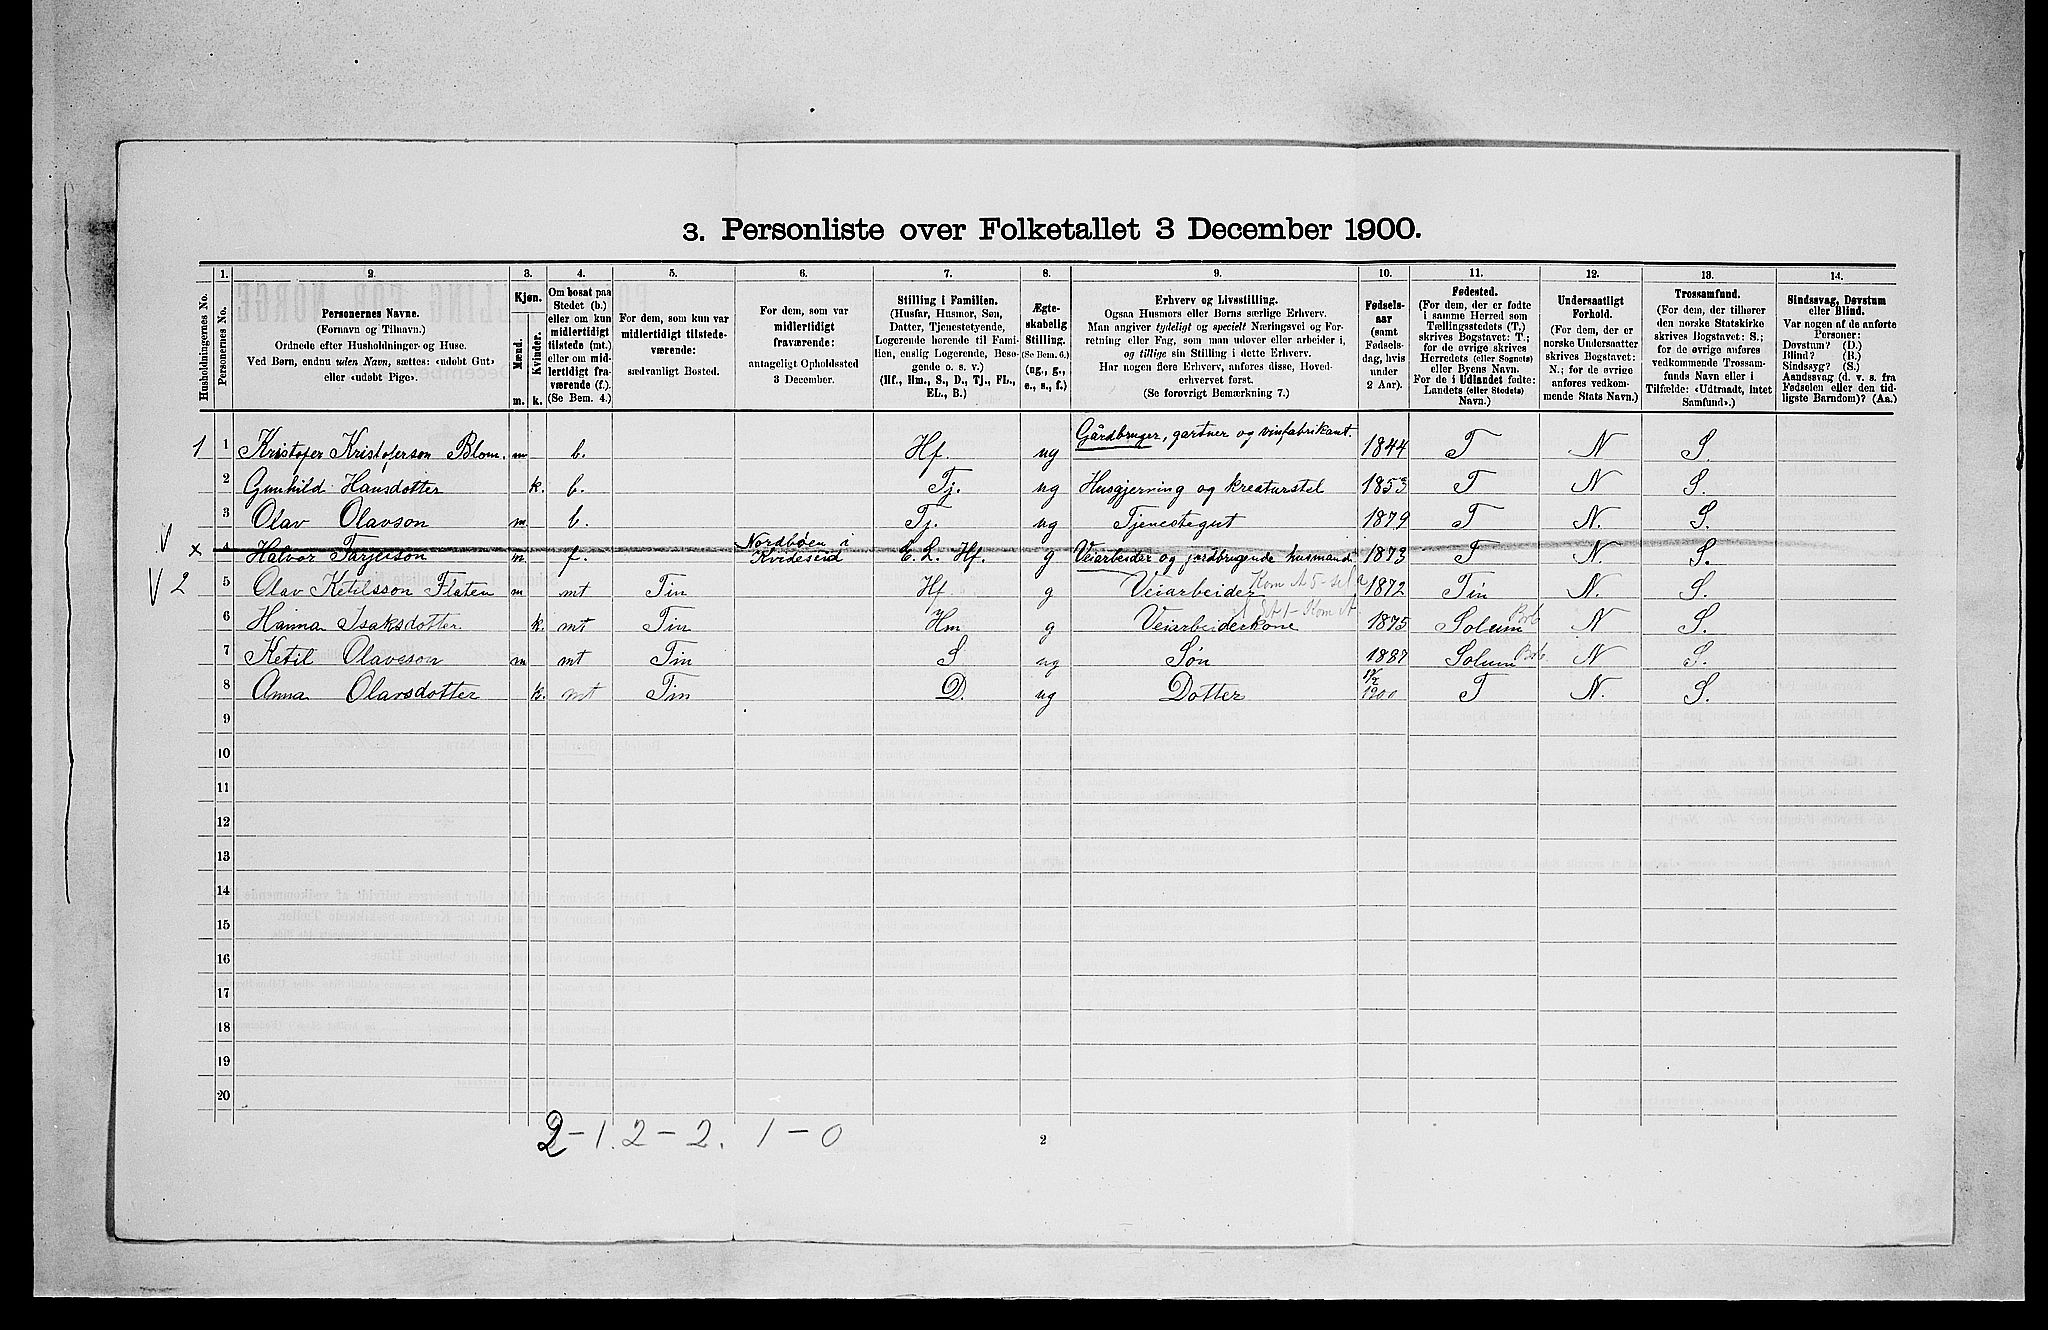 3. Personliste over Folketallet 3 December 1900.
Husholdningernes No.
1. Personernes No.
2. Personernes Navne. (Fornavn og Tilnavn.) Ordnede efter Husholdninger og Huse. Ved Børn, endnu uden Navn, sættes: «udøbt Gut» eller «udøbt Pige».
3. Kjøn. Mænd. m. Kvinder. k.
4. Om bosat paa Stedet (b.) eller om kun midlertidigt tilstede (mt.) eller om midlertidigt fraværende (f.). (Se Bem. 4.)
5. For dem, som kun var midlertidigt tilstedeværende: sædvanligt Bosted.
6. For dem, som var midlertidigt fraværende: antageligt Opholdssted 3 December.
7. Stilling i Familien. (Husfar, Husmor, Søn, Datter, Tjenestetyende, Logerende hørende til Familien, enslig Logerende, Besøgende o. s. v.) (Hf., Hm., S., D., Tj., FL., EL., B.)
8. Ægteskabelig Stilling. (Se Bem. 6.) (ug., g., e., s., f.)
9. Erhverv og Livsstilling. Ogsaa Husmors eller Børns særlige Erhverv. Man angiver tydeligt og specielt Næringsvei og Forretning eller Fag, som man udøver eller arbeider i, og tillige sin Stilling i dette Erhverv. Har nogen flere Erhverv, anføres disse, Hovederhvervet først. (Se forøvrigt Bemærkning 7.)
10. Fødselsaar (samt Fødselsdag, hvis under 2 Aar).
11. Fødested. (For dem, der er fødte i samme Herred som Tællingsstedets (T.) skrives Bogstavet: T.; for de øvrige skrives Herredets (eller Sognets) eller Byens Navn. For de i Udlandet fødte: Landets (eller Stedets) Navn.)
12. Undersaatligt Forhold. (For dem, der er norske Undersaatter skrives Bogstavet: N.; for de øvrige anføres vedkommende Stats Navn.)
13. Trossamfund. (For dem, der tilhører den norske Statskirke skrives Bogstavet: S.; for de øvrige anføres vedkommende Trossamfunds Navn eller i Tilfælde: «Udtraadt, intet Samfund».)
14. Sindssvag, Døvstum eller Blind. Var nogen af de anførte Personer: Døvstum? (D.) Blind? (B.) Sindssyg? (S.) Aandssvag (d. v. s. fra Fødselen eller den tidligste Barndom)? (Aa.)
1 1 Kristofer Kristoferson Blom. m b. Hf. ug Gårdbruger, gartner og vinfabrikant. 1844 T N S.
2 Gunhild Hansdotter k. b. Tj. ug Husgjerning og kreaturstel 1853 T N S.
3 Olav Olavson m b. Tj. ug Tjenestegut 1879 T N. S.
V x 4 Halvor Tarjeison m f. Nordbøen i Kvideseid E. L. Hf. g Veiarbeider og jordbrugende husmand 1873 T N. S.
V 2 5 Olav Ketilsson Flaten m mt Tin Hf. g Veiarbeider 1872 Tin N. S.
6 Hanna Isaksdotter k. mt Tin Hm g Veiarbeiderkone 1875 Solum N S.
7 Ketil Olaveson m mt Tin S ug Søn 1887 Solum N S.
8 Anna Olavsdotter k. mt Tin D. ug Dotter 1900 T N. S.
9
10
11
12
13
14
15
16
17
18
19
20
2-1. 2-2. 1-0
2